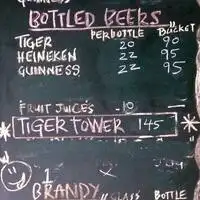 GUINNESS
BOTTLED BEERS
PER BOTTLE BUCKET
TIGER 20 90
HEINEKEN 22 95
GUINNESS 22 95
FRUIT JUICES -10 —
* TIGER TOWER 145 *
1
BRANDY GLASS BOTTLE